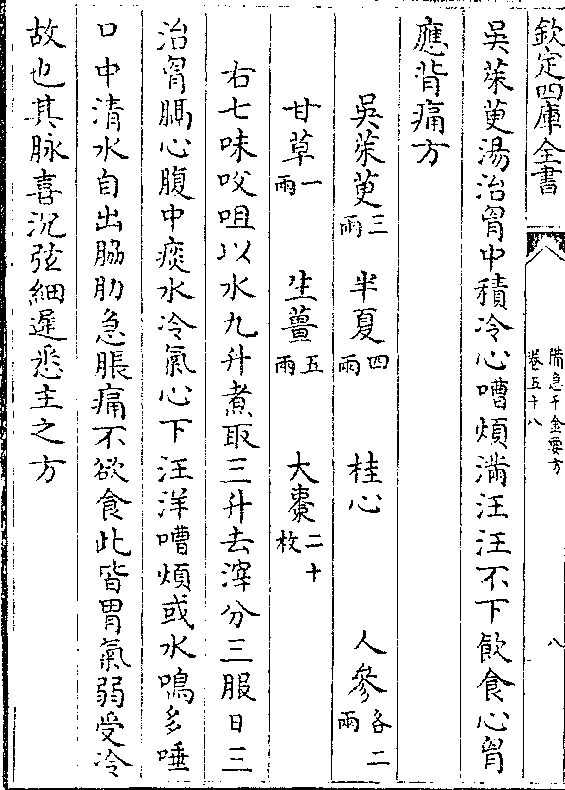 欽定四庫全書
備急千金要方
卷五十八
八
吳茱萸湯治胷中積冷心嘈煩滿汪汪不下飲食心胷
應背痛方
吳茱萸三兩 半夏四兩 桂心 人參各二兩
甘草一兩 生薑五兩 大棗二十枚
右七味㕮咀以水九升煮取三升去滓分三服日三
治胷膈心腹中痰水冷氣心下汪洋嘈煩或水鳴多唾
口中清水自出脇肋急脹痛不欲食此皆胃氣弱受冷
故也其脉喜沉弦細遲悉主之方